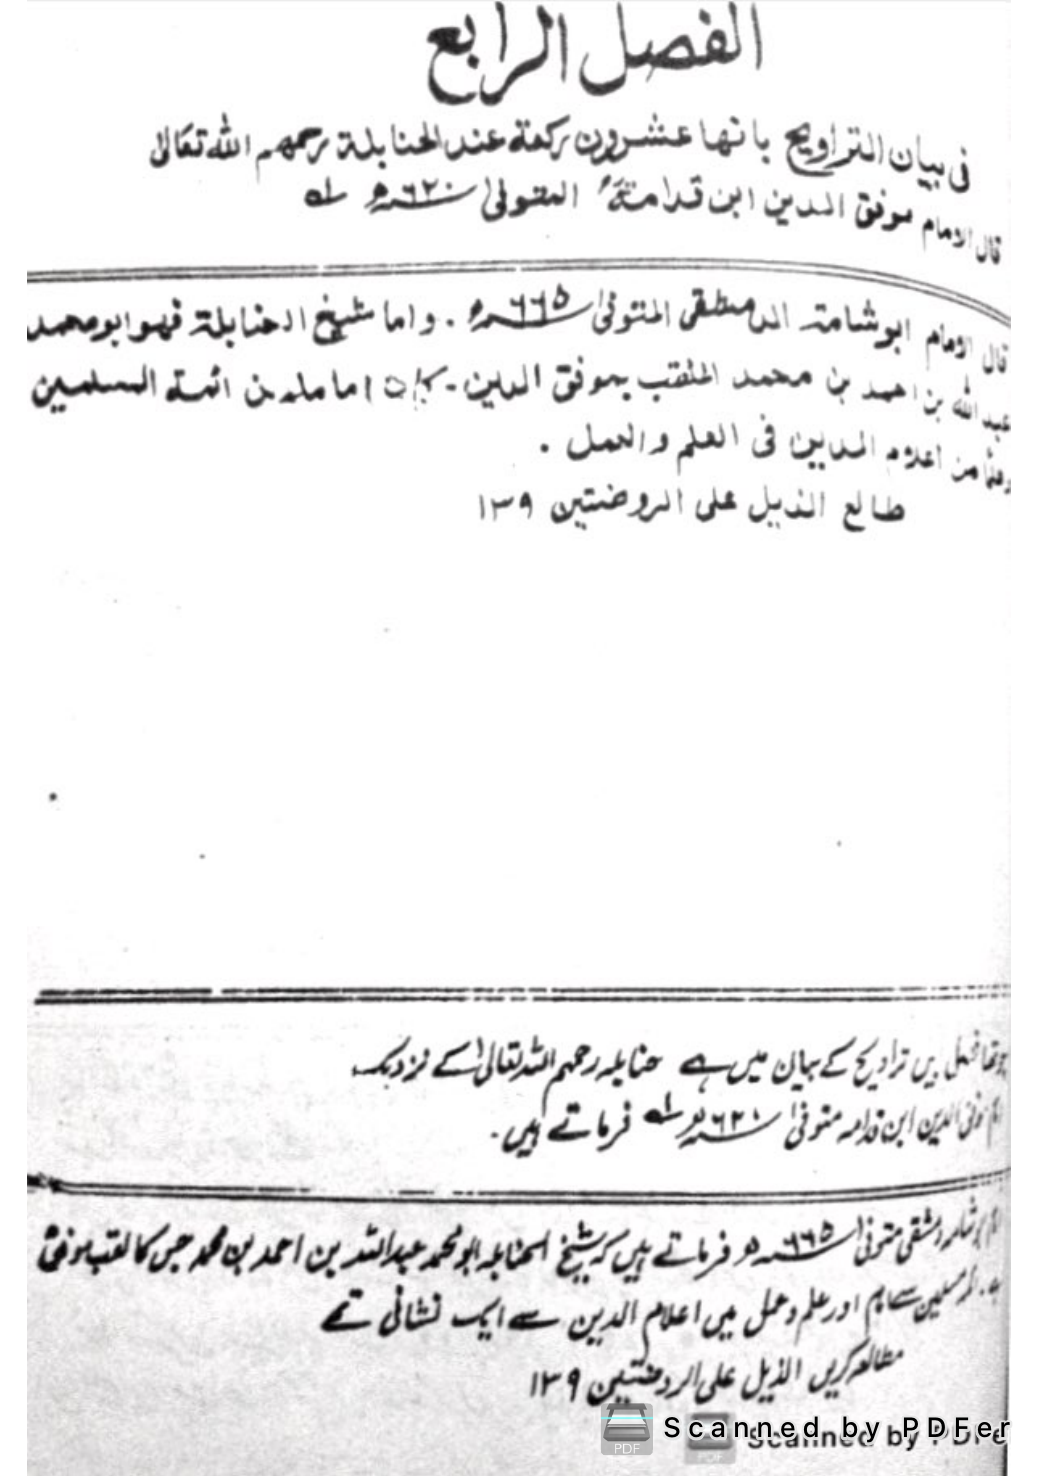 الفصل الرابع
فی بیان التراویح بانها عشرون رکعة عند الحنابلة رحمهم الله تعالیٰ
قال الامام موفق الدین ابن قدامةؒ المتوفیٰ ۶۲۰ھ لـه
قال الامام ابوشامة الدمشقی المتوفیٰ ۶۶۵ھ . واما شیخ الحنابلة فهو ابو محمد
عبد الله بن احمد بن محمد الملقب بموفق الدین - کان اماما من ائمة المسلمین
وعلما من اعلام الدین فی العلم والعمل .
طالع الذیل علی الروضتین ۱۳۹
چوتھا فصل بیس تراویح کے بیان میں ہے حنابلہ رحمہم اللہ تعالیٰ کے نزدیک
امام موفق الدین ابن قدامہ متوفیٰ ۶۲۰ھ لـه فرماتے ہیں۔
امام ابوشامہ دمشقی متوفیٰ ۶۶۵ھ فرماتے ہیں کہ شیخ الحنابلہ ابو محمد عبداللہ بن احمد بن محمد جس کا لقب موفق
ہے۔ ائمہ مسلمین سے امام اور علم وعمل میں اعلام الدین سے ایک نشانی تھے
مطالعہ کریں الذیل علی الروضتین ۱۳۹
Scanned by PDFer
Scanned by PDFe
PDF